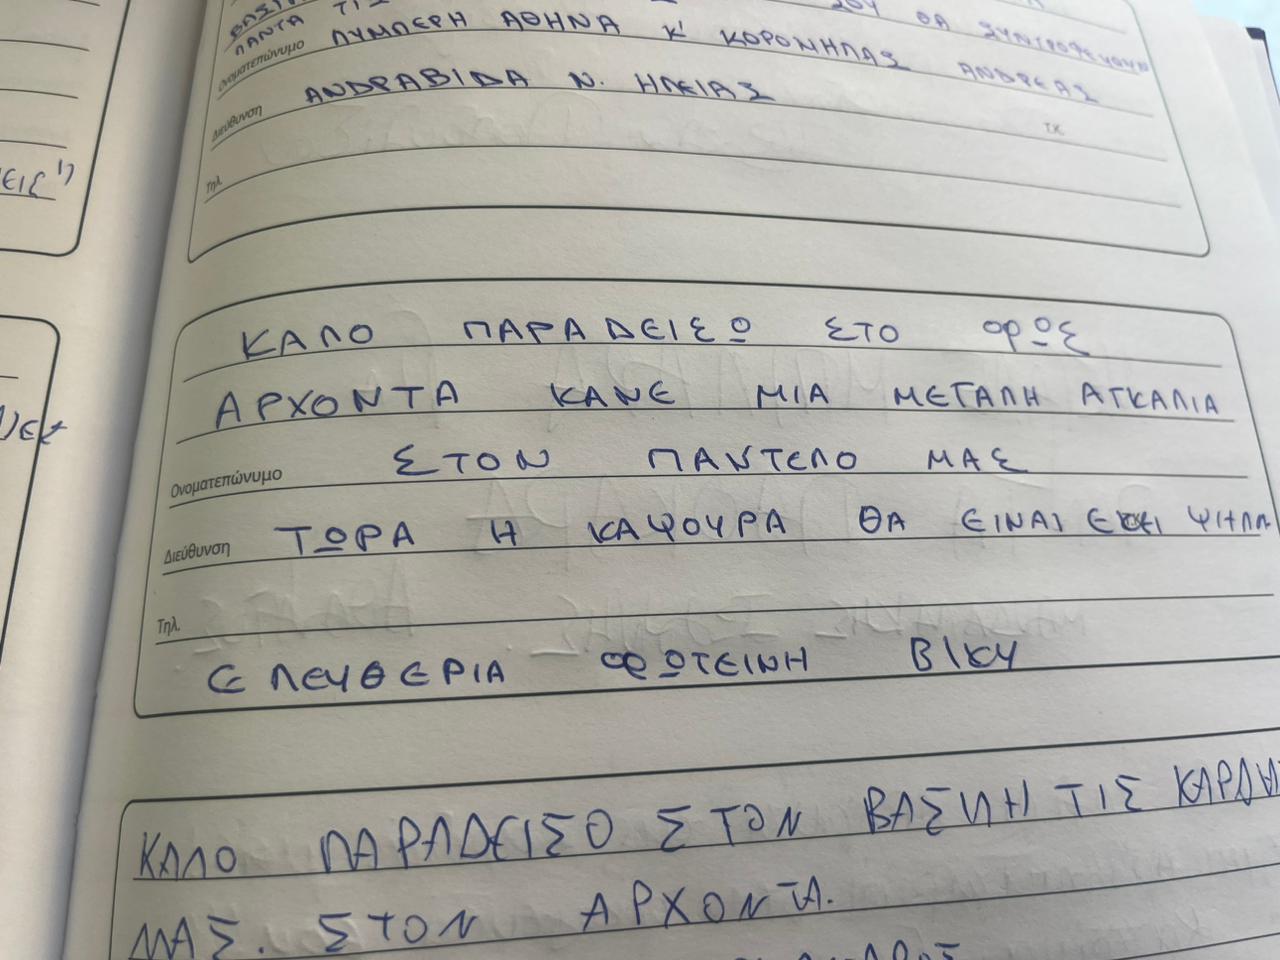 ΠΑΝΤΑ ΤΙΣ
ΣΟΥ ΘΑ ΣΥΝΤΡΟΦΕΥΟΥΝ
Ονοματεπώνυμο ΛΥΜΠΕΡΗ ΑΘΗΝΑ Κ' ΚΟΡΟΜΗΛΑΣ ΑΝΔΡΕΑΣ
Διεύθυνση ΑΝΔΡΑΒΙΔΑ Ν. ΗΛΕΙΑΣ
Τ.Κ.
Τηλ.
ΚΑΛΟ ΠΑΡΑΔΕΙΣΩ ΣΤΟ ΦΩΣ
ΑΡΧΟΝΤΑ ΚΑΝΕ ΜΙΑ ΜΕΓΑΛΗ ΑΓΚΑΛΙΑ
Ονοματεπώνυμο ΣΤΟΝ ΠΑΝΤΕΛΟ ΜΑΣ
Διεύθυνση ΤΩΡΑ Η ΚΑΨΟΥΡΑ ΘΑ ΕΙΝΑΙ ΕΚΕΙ ΨΗΛΑ
Τηλ.
ΕΛΕΥΘΕΡΙΑ ΦΩΤΕΙΝΗ ΒΙΚΥ
ΚΑΛΟ ΠΑΡΑΔΕΙΣΟ ΣΤΟΝ ΒΑΣΙΛΗ ΤΙΣ
ΜΑΣ. ΣΤΟΝ ΑΡΧΟΝΤΑ.